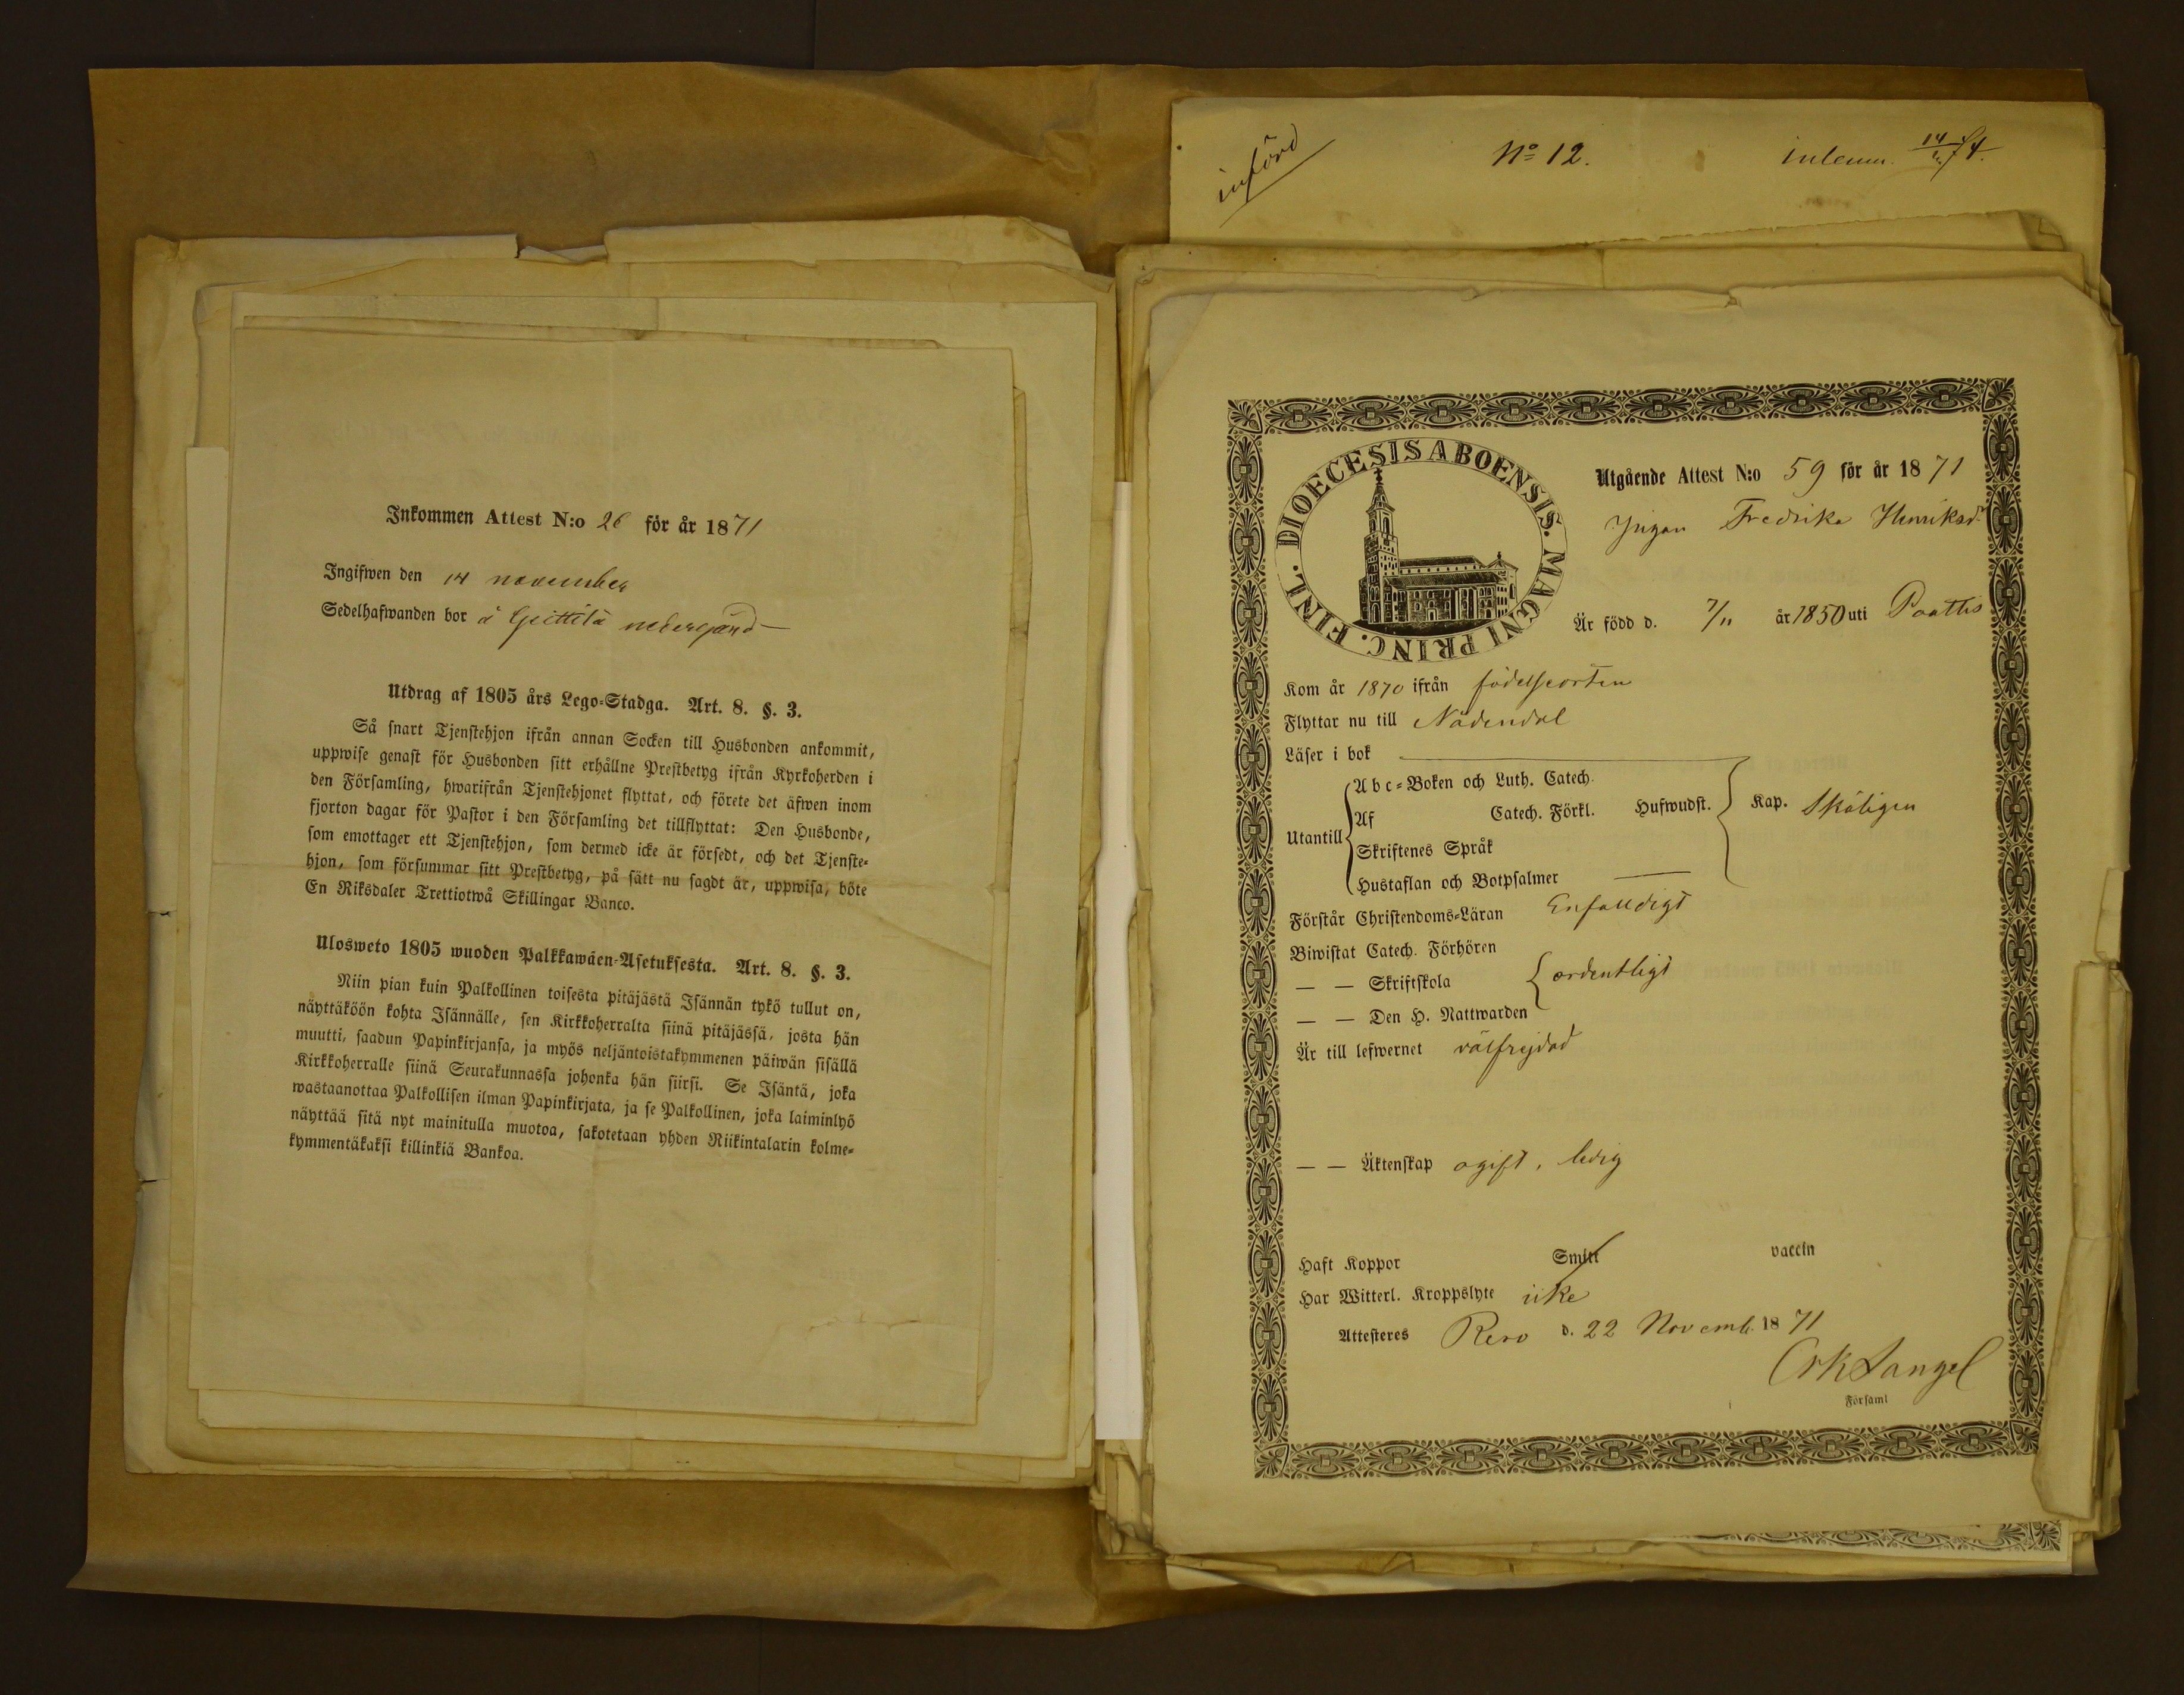 Inkommen Attest N:o 26 för år 1871
Ingifwen den 14 november
Sedelhafwanden bor å
Utdrag af 1805 års Lego-Stadga. Art. 8. §. 3.
Så snart Tjenstehjon ifrån annan Socken till Husbonden ankommit,
uppwise genast för Husbonden sitt erhållne Prestbetyg ifrån Kyrkoherden i
den Församling, hwarifrån Tjenstehjonet flyttat, och förete det äfwen inom
fjorton dagar för Pastor i den Församling det tillflyttat: Den Husbonde,
som emottager ett Tjenstehjon, som dermed icke är försedt, och det Tjenste-
hjon, som försummar sitt Prestbetyg, på sätt nu sagdt är, uppwisa, böte
En Riksdaler Trettiotwå Skillingar Banco.
Ulosweto 1805 wuoden Palkkawäen-Asetuksesta. Art. 8. §. 3.
Niin pian kuin Palkollinen toisesta pitäjästä Isännän tykö tullut on,
näyttäköön kohta Isännälle, sen Kirkkoherralta siinä pitäjässä, josta hän
muutti, saadun Papinkirjansa, ja myös neljäntoistakymmenen päiwän sisällä
Kirkkoherralle siinä Seurakunnassa johonka hän siirsi. Se Isäntä, joka
wastaanottaa Palkollisen ilman Papinkirjata, ja se Palkollinen, joka laiminlyö
näyttää sitä nyt mainitulla muotoa, sakotetaan yhden Riikintalarin kolme-
kymmentäkaksi killinkiä Bankoa.
införd
No 12.
DIOECESIS ABOENSIS. MAGNI PRINC. FINL.
Utgående Attest N:o 59 för år 1871
Pigan Fredrika Henriksdr
Är född d. 7/11 år 1850 uti Paattis
Kom år 1870 ifrån födelseorten
Flyttar nu till Nådendal
Läser i bok
Abc-Boken och Luth. Catech.
Utantill Af Catech. Förkl. Hufwudst. Kap. Skäligen
Skriftenes Språk
Hustaflan och Botpsalmer
Förstår Christendoms-Läran Enfaldigt
Biwistat Catech. Förhören
— — Skriftskola ordentligt
— — Den H. Nattwarden
Är till lefwernet välfrejdad
— — Äktenskap ogift, ledig
Haft Koppor Smitt vaccin
Har Witterl. Kroppslyte icke
Attesteres Reso d. 22 Novemb. 1871
Församl